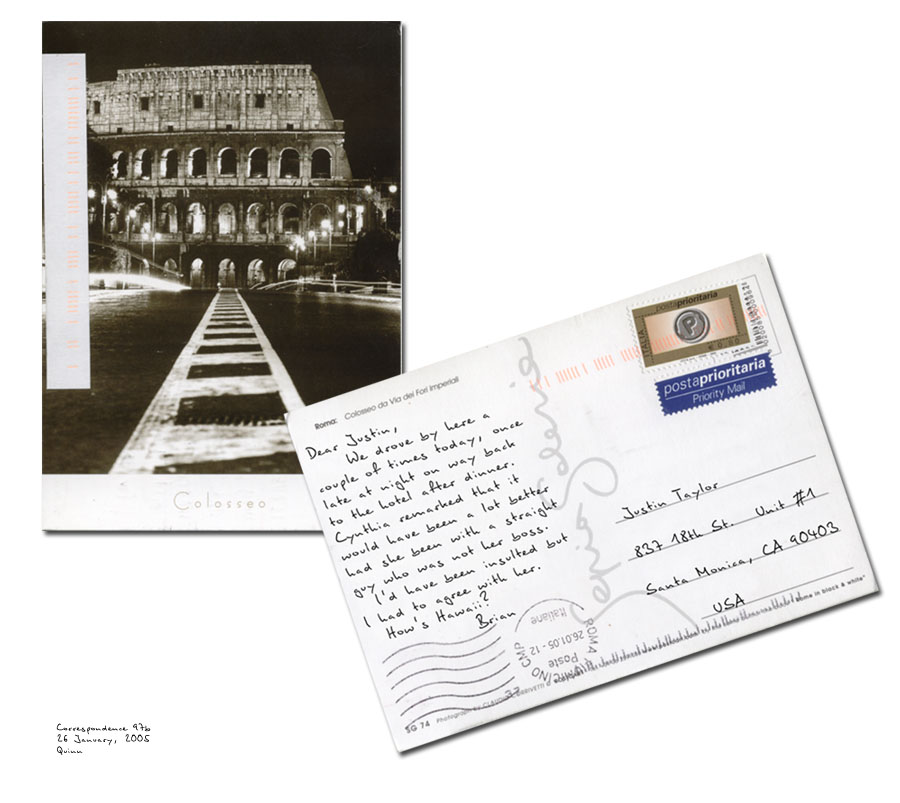 Colosseo
Roma: Colosseo da Via dei Fori Imperiali
Dear Justin,
We drove by here a
couple of times today, once
late at night on way back
to the hotel after dinner.
Cynthia remarked that it
would have been a lot better
had she been with a straight
guy who was not her boss.
I'd have been insulted but
I had to agree with her.
How's Hawaii?
Brian
postaprioritaria
ITALIA
P
€ 0.80
postaprioritaria
Priority Mail
Justin Taylor
837 18th St. Unit #1
Santa Monica, CA 90403
USA
ROMA FIUMICINO CMP
26.01.05 - 12
Poste
Italiane
SG 74 Photograph by
Rome in black & white"
Correspondence 97b
26 January, 2005
Quinn